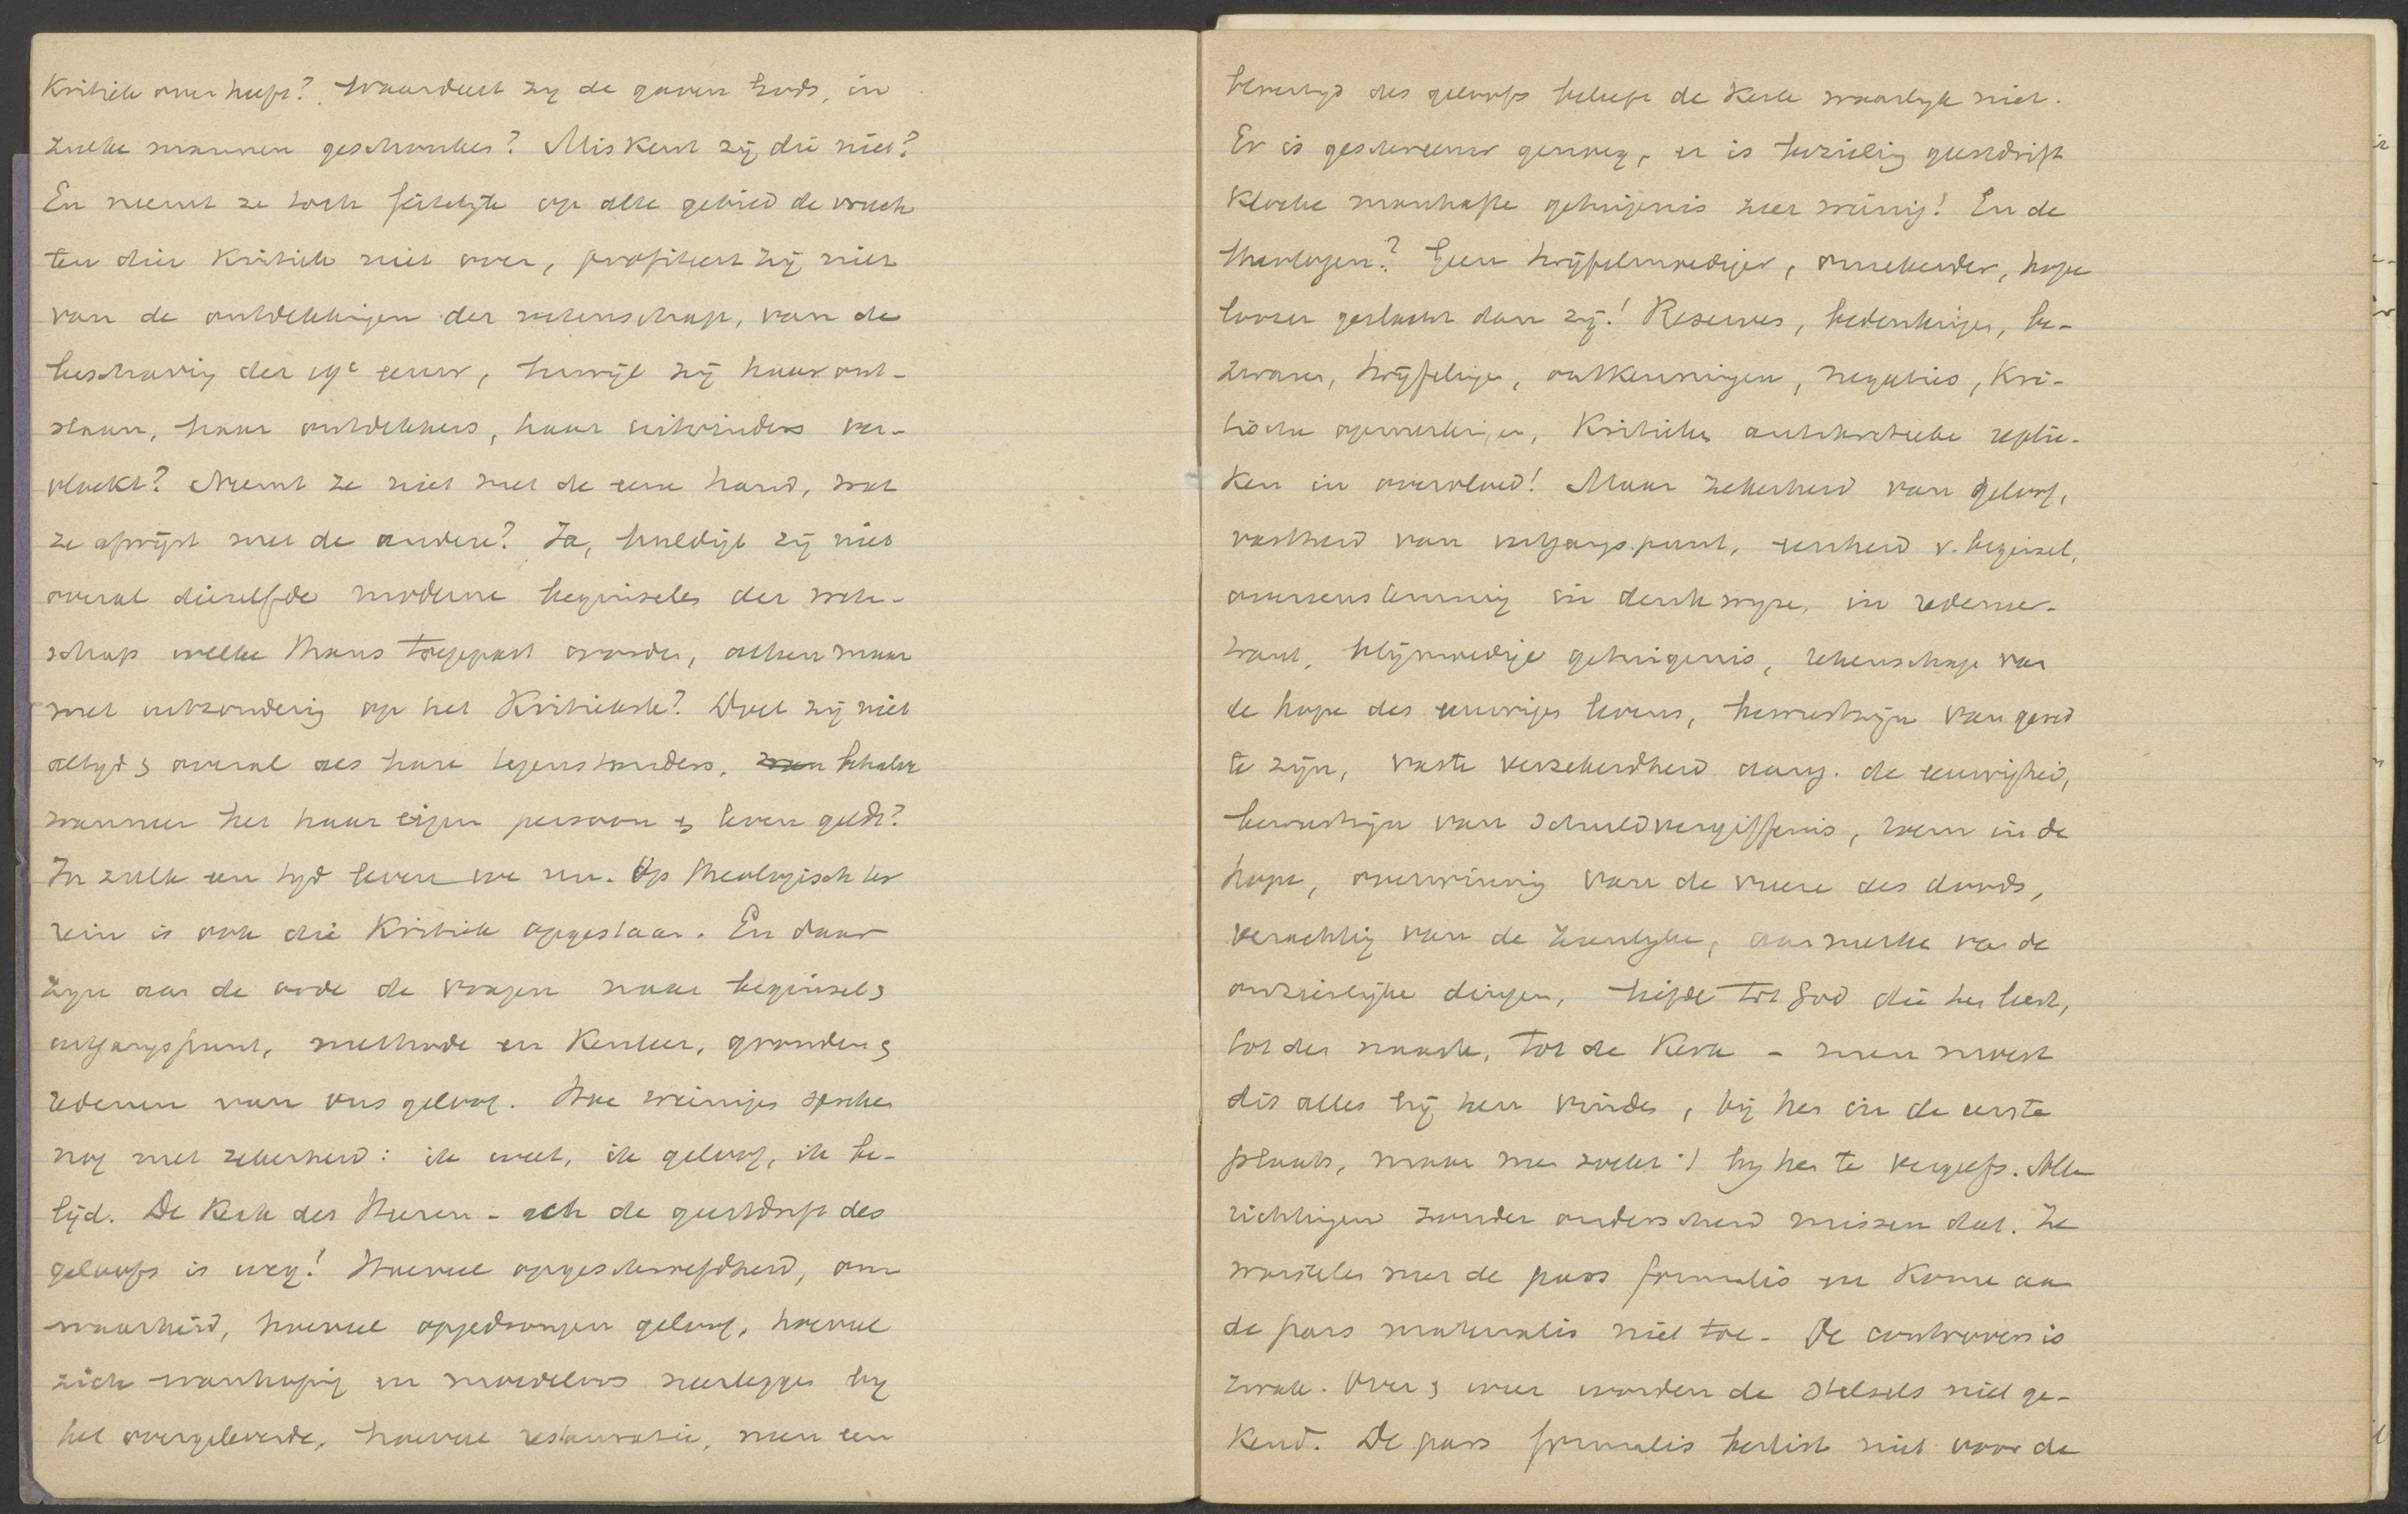 Kritiek over heeft? Waardeert zij de gaven Gods, in
zulke mannen geschonken? Miskent zij die niet?
En neemt ze toch feitelijk op elke gebied de vruch
ten dier Kritiek niet over, profiteert zij niet
van de ontdekkingen der wetenschap, van de
beschaving der 19e eeuw, terwijl zij haar ont-
staan, haar ontdekkers, haar uitvinders ver-
vloekt? Neemt ze niet met de eene hand, wat
ze afwijst met de andere? Ja, huldigt zij niet
overal diezelfde moderne beginselen der weten-
schap welke thans toegepast worden, alleen maar
met uitzondering op het Kritiekste? Doet zij niet
altijd & overal als hare tegenstanders, behalve
wanneer het haar eigen persoon & leven geldt?
In zulk een tijd leven we nu. Op theologisch ter
rein is ook die Kritiek opgestaan. En daar
zijn aan de orde de vragen naar beginsel &
uitgangspunt, methode en Kenleer, gronden &
redenen van ons geloof. Hoe weiniges spreken
nog met zekerheid: ik weet, ik geloof, ik be-
lijd. De Kerk des Heeren - ach de geestdrift des
geloofs is weg! Hoeveel opgeschroefdheid, on
waarheid, hoeveel opgedrongen geloof, hoeveel
zich wanhopig en moedeloos neerleggen bij
het overgeleverde, hoeveel restauratie, men een
des geloofs beleeft de Kerk waarlijk niet.
Er is geschreeuw genoeg, er is geestdrift
Kloeke manhafte getuigenis zeer weinig! En de
theologen? Geen twijfelmoediger, onzekerder, hope
loozer geslacht dan zij! Reserves, bedenkingen, be-
zwaren, twijfelingen, ontkenningen, negaties, Kri-
tische opmerkingen, Kritieken antikritieke replie-
ken in overvloed! Maar zekerheid van geloof,
vastheid van uitgangspunt, eenheid v. beginsel,
overeenstemming in denkwijze, in redeneer-
trant, blijmoedige getuigenis, rekenschap van
de hope des eeuwigen levens, bewustzijn van gered
te zijn, vaste verzekerdheid aang. de eeuwigheid,
bewustzijn van schuldvergiffenis, roem in de
hope, overwinning van de vreeze des doods,
verachting van de zienlijke, aanmerken van de
onzienlijke dingen, liefde tot God die hen leidt,
tot den naaste, tot de Kerk - men moest
dit alles bij hen vinden, bij hen in de eerste
plaats, maar men zoekt 't bij hen te vergeefs. Alle
richtingen zonder onderscheid missen dat. Ze
worstelen met de pars formalis en Komen aan
de pars materialis niet toe. De controvers is
zwak. Over & weer worden de stelsels niet ge-
Kend. De pars formalis beslist niet voor de